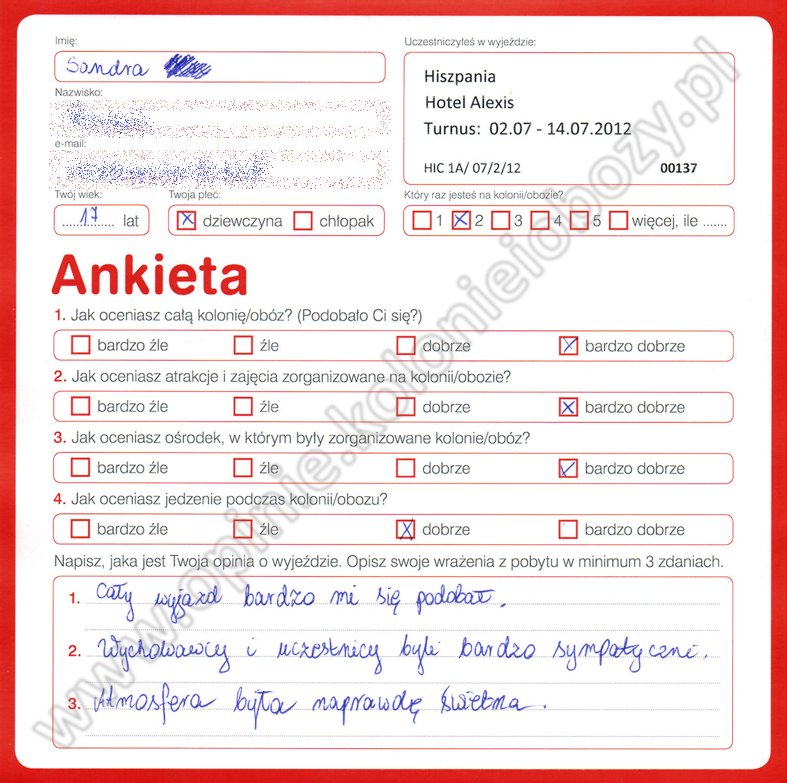 Imię:
Sandra
Nazwisko:
e-mail:
Twój wiek:
17 lat
Twoja płeć:
dziewczyna chłopak
Uczestniczyłeś w wyjeździe:
Hiszpania
Hotel Alexis
Turnus: 02.07 - 14.07.2012
HIC 1A/ 07/2/12 00137
Który raz jesteś na kolonii/obozie?
1 2 3 4 5 więcej, ile .......
Ankieta
1. Jak oceniasz całą kolonię/obóz? (Podobało Ci się?)
bardzo źle źle dobrze bardzo dobrze
2. Jak oceniasz atrakcje i zajęcia zorganizowane na kolonii/obozie?
bardzo źle źle dobrze bardzo dobrze
3. Jak oceniasz ośrodek, w którym były zorganizowane kolonie/obóz?
bardzo źle źle dobrze bardzo dobrze
4. Jak oceniasz jedzenie podczas kolonii/obozu?
bardzo źle źle dobrze bardzo dobrze
Napisz, jaka jest Twoja opinia o wyjeździe. Opisz swoje wrażenia z pobytu w minimum 3 zdaniach.
1. Cały wyjazd bardzo mi się podobał.
2. Wychowawcy i uczestnicy byli bardzo sympatyczni.
3. Atmosfera była naprawdę świetna.
www.opinie.kolonieiobozy.pl